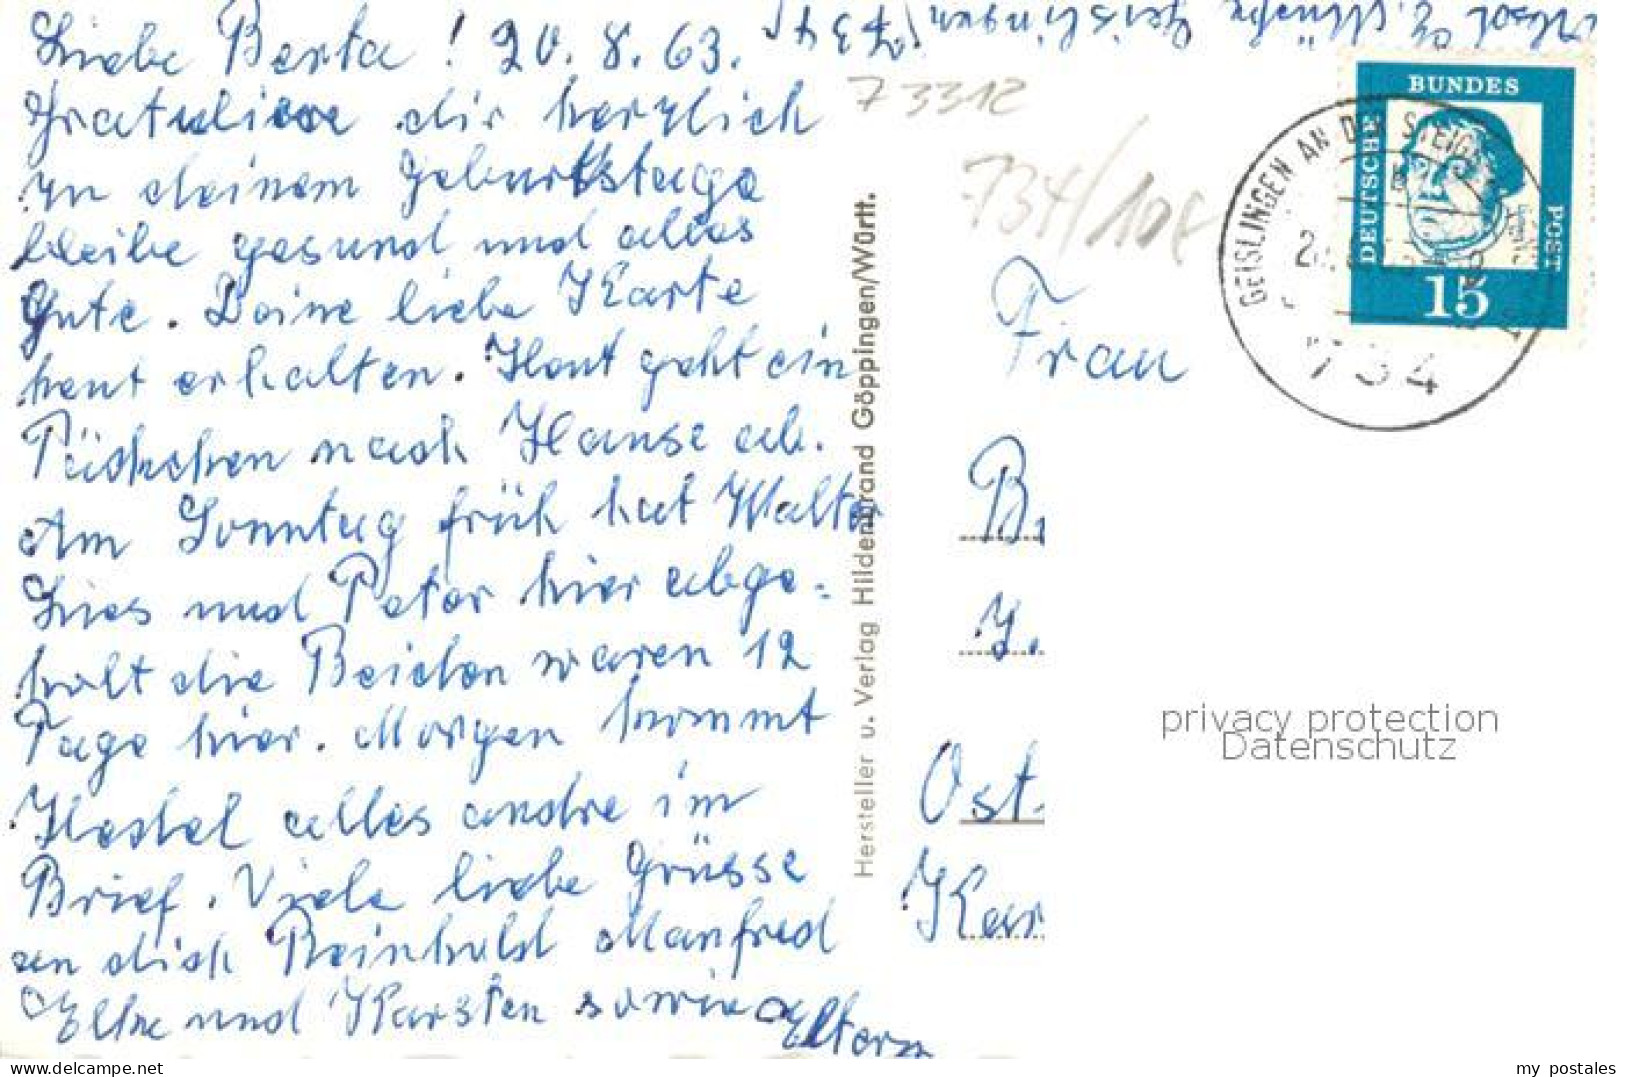 Liebe Berta! 20.8.63.
Gratuliere dir herzlich
zu deinem Geburtstage
bleibe gesund und alles
Gute. Deine liebe Karte
heut erhalten. Heut geht ein
Päckchen nach Hause ab.
Am Sonntag früh hat Walter
Lies und Peter hier abge=
holt die Beiden waren 12
Tage hier. Morgen kommt
alles andre im
Brief. Viele liebe Grüsse
an dich Reinhold Manfred
Elke und Karsten sowie Eltern
Geislingen
(734)
73312
734/10
Hersteller u. Verlag Hildenbrand Göppingen/Württ.
DEUTSCHE
BUNDES
POST
15
GEISLINGEN AN DER STEIGE
734
Frau
B.
Ost
Kar
privacy protection
Datenschutz
my postales
www.delcampe.net